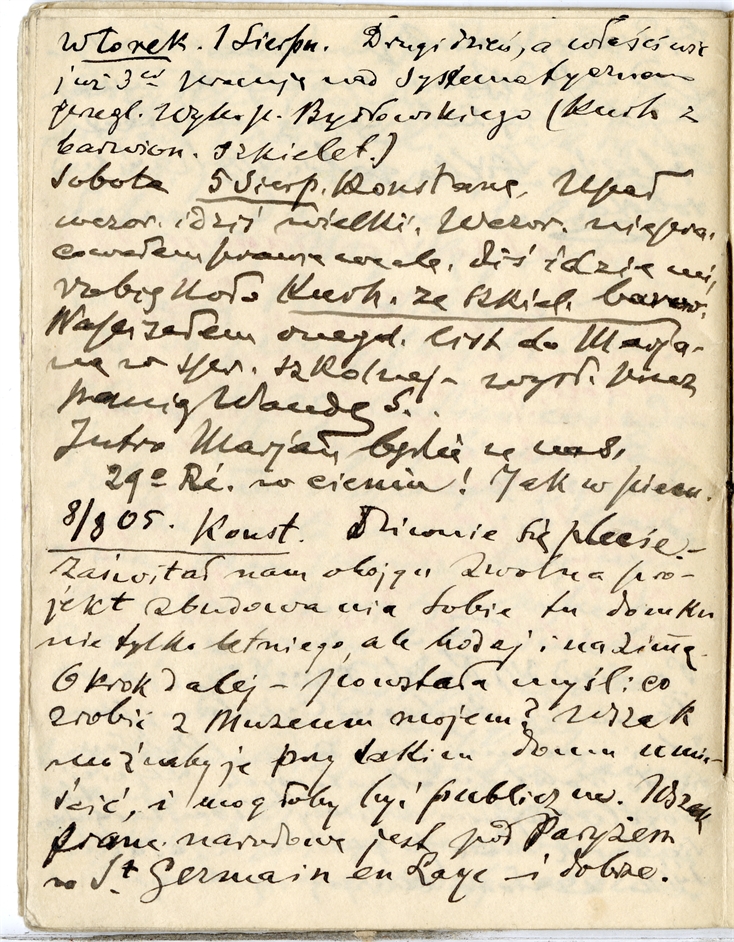 Wtorek. 1 Sierpn. Drugi dzień, a właściwie
już 3ci pracuję nad systematycznem
przegl. Wykop. Bydłowskiego (Kurh z
barwion. szkielet.)
Sobota 5 Sierp. Konstanc. Upał
wczor. i dziś wielki. Wczor. niepra-
cowałem prawie wcale. Dziś idzie mi
Kurh. ze szkiel. barw.
Napisałem onegd. list do Marja-
na w spr. szkolnej - wysł. przez
pannę Wandę S..
Jutro Marjan będzie u nas.
29° Ré. w cieniu! Jak w piecu.
8/8 05. Konst. Dziwnie się plecie. -
Zaświtał nam obojgu zwolna pro-
jekt zbudowania sobie tu domku
nietylko letniego, ale bodaj i na zimę.
O krok dalej - powstała myśl: co
zrobić z Muzeum mojem? Wszak
możnaby je przy takim domu umie-
ścić, i mogłoby być publiczne. Wszak
franc. narodowe jest pod Paryżem
w St Germain en Laye - i dobrze.